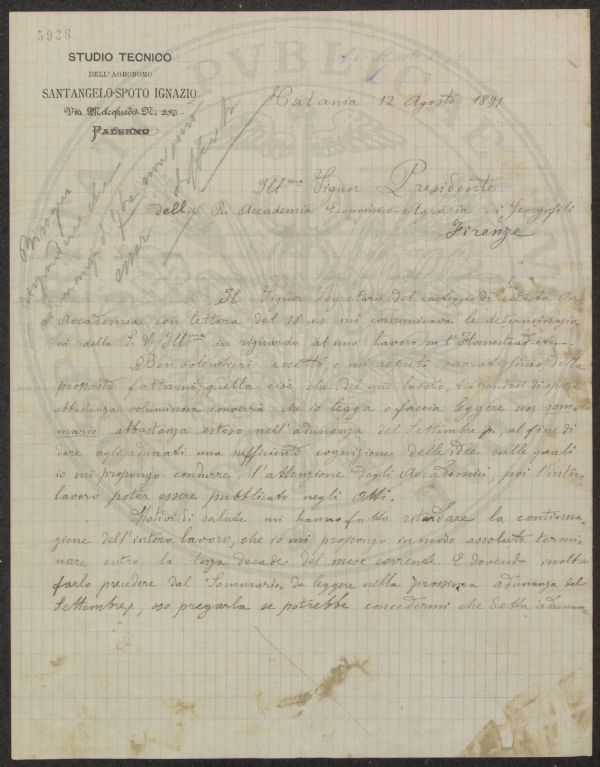 5928
STUDIO TECNICO
DELL'AGRONOMO
SANTANGELO-SPOTO IGNAZIO
Via Macqueda N. 250
PALERMO
Catania 12 Agosto 1891
Ill.mo Signor Presidente
della R. Accademia Economico-Agraria dei Georgofili
Firenze
Il Signor Segretario del carteggio di codesta On.
Accademia, con lettera del 18 u.s. mi comunicava le determinazio-
ni della S. V. Ill.ma in riguardo al mio lavoro su l'Homestead etc.
Ben volentieri accetto e mi reputo onoratissimo della
proposta fattami, quella cioè che del mio lavoro, trattandosi di opera
abbastanza voluminosa converrà che io legga o faccia leggere un som-
mario abbastanza esteso nell'adunanza del Settembre p., al fine di
dare agli adunati una sufficiente cognizione delle idee sulle quali
io mi propongo condurre l'attenzione degli Accademici, poi l'intero
lavoro potrà essere pubblicato negli Atti.
Motivi di salute mi hanno fatto ritardare la continua-
zione dell'intero lavoro, che io mi propongo in modo assoluto termi-
nare entro la terza decade del mese corrente. E dovendo inoltre
farlo precedere dal Sommario da leggere nella prossima adunanza del
Settembre, oso pregarla se potrebbe concedermi che detta adunan-